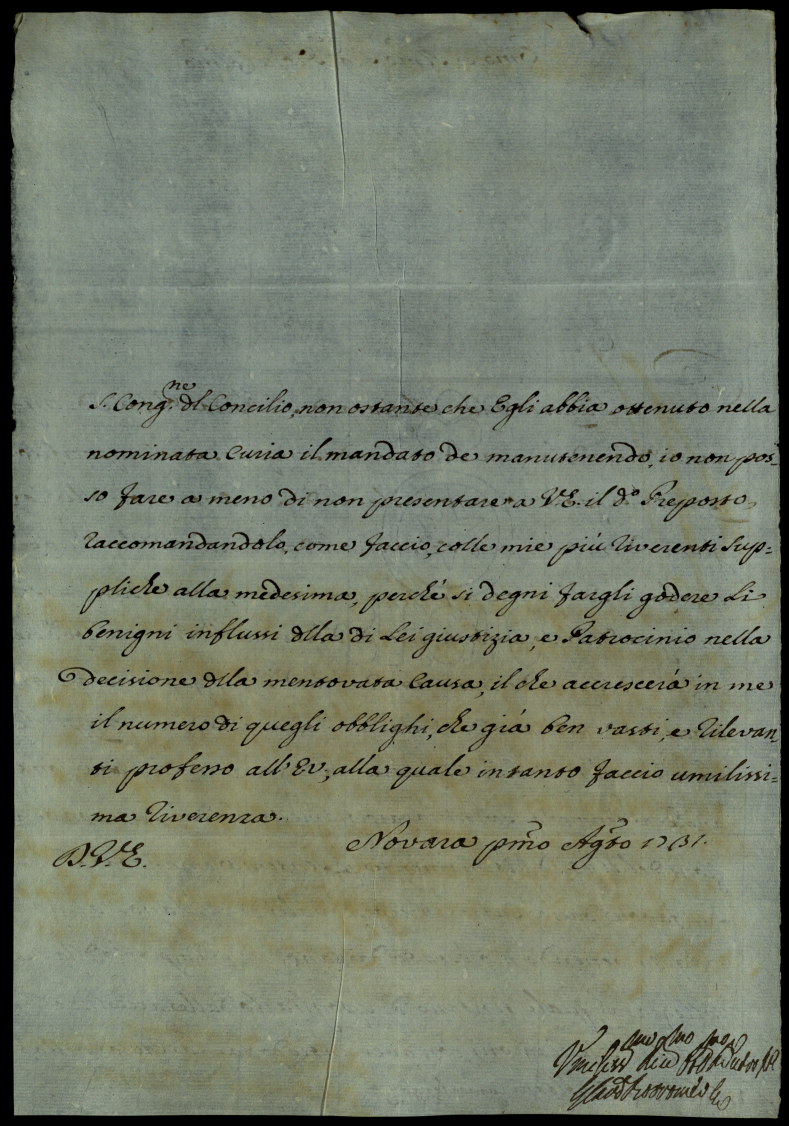 S. Cong.ne dl Concilio, non ostante che Egli abbia ottenuto nella
nominata Curia il mandato de manutenendo, io non pos=
so fare a meno di non presentare a V.E. il do. Preposto,
raccomandandolo, come faccio, colle mie più riverenti sup=
pliche alla medesima, perché si degni fargli godere li
benigni influssi dlla di Lei giustizia, e Patrocinio nella
decisione dlla mentovata Causa, il che accrescerà in me
il numero di quegli obblighi, che già ben vasti, e rilevan=
ti professo all'EV., alla quale intanto faccio umilissi=
ma riverenza.
Novara pmo Agto 1731.
D. V. E.